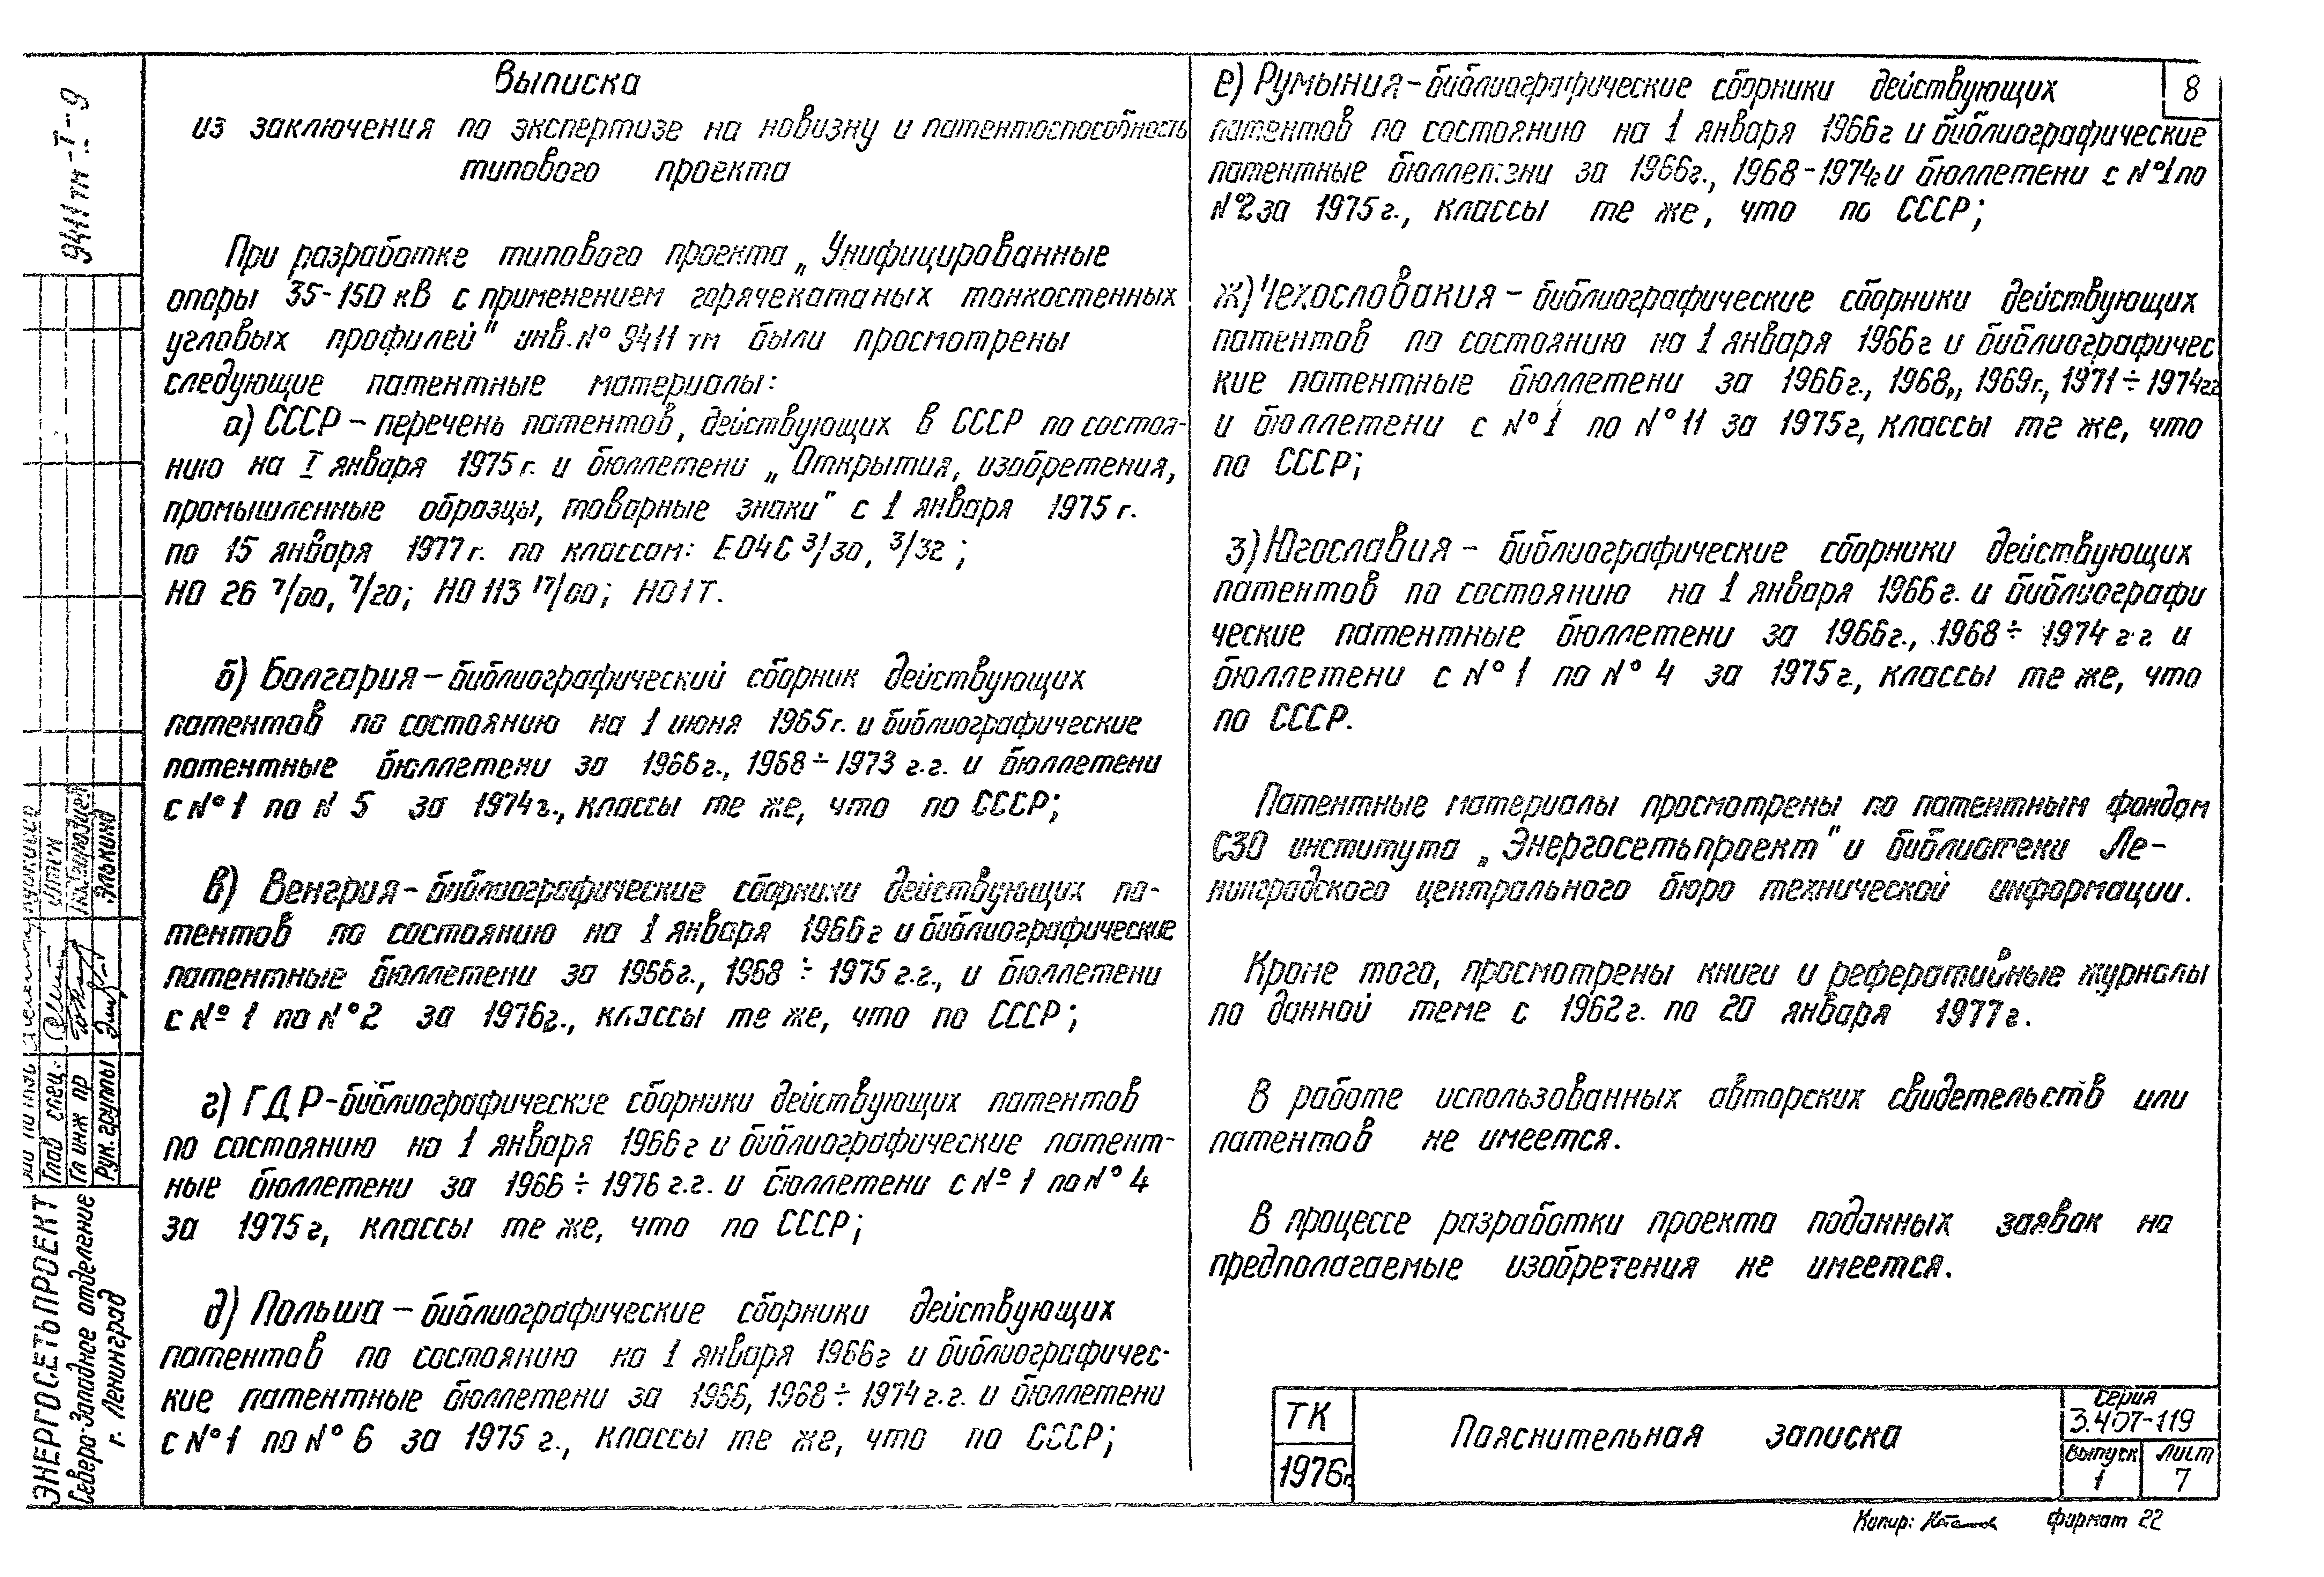 Выписка
из заключения по экспертизе на новизну и патентоспособность
типового проекта
При разработке типового проекта „Унифицированные
опоры 35-150 кВ с применением горячекатаных тонкостенных
угловых профилей" инв. № 9411 тм были просмотрены
следующие патентные материалы:
а) СССР – перечень патентов, действующих в СССР по состоя-
нию на I января 1975 г. и бюллетени „Открытия, изобретения,
промышленные образцы, товарные знаки" с 1 января 1975 г.
по 15 января 1977 г. по классам: E04C 3/30, 3/32;
НО 26 7/00, 7/20; НО 113 17/00; НО1Т.
б) Болгария – библиографический сборник действующих
патентов по состоянию на 1 июня 1965 г. и библиографические
патентные бюллетени за 1966 г., 1968 ÷ 1973 г.г. и бюллетени
с № 1 по N 5 за 1974 г., классы те же, что по СССР;
в) Венгрия – библиографические сборники действующих па-
тентов по состоянию на 1 января 1966 г и библиографические
патентные бюллетени за 1966 г., 1968 ÷ 1975 г.г., и бюллетени
с № 1 по № 2 за 1976 г., классы те же, что по СССР;
г) ГДР – библиографические сборники действующих патентов
по состоянию на 1 января 1966 г и библиографические патент-
ные бюллетени за 1966 ÷ 1976 г.г. и бюллетени с № 1 по № 4
за 1975 г, классы те же, что по СССР;
д) Польша – библиографические сборники действующих
патентов по состоянию на 1 января 1966 г и библиографичес-
кие патентные бюллетени за 1966, 1968 ÷ 1974 г.г. и бюллетени
с № 1 по № 6 за 1975 г., классы те же, что по СССР;
8
е) Румыния – библиографические сборники действующих
патентов по состоянию на 1 января 1966 г и библиографические
патентные бюллетени за 1966 г., 1968 - 1974 г и бюллетени с № 1 по
№ 2 за 1975 г., классы те же, что по СССР;
ж) Чехословакия – библиографические сборники действующих
патентов по состоянию на 1 января 1966 г и библиографичес
кие патентные бюллетени за 1966 г., 1968,, 1969 г., 1971 ÷ 1974 гг
и бюллетени с № 1 по № 11 за 1975 г, классы те же, что
по СССР;
з) Югославия – библиографические сборники действующих
патентов по состоянию на 1 января 1966 г. и библиографи
ческие патентные бюллетени за 1966 г., 1968 ÷ 1974 г г и
бюллетени с № 1 по № 4 за 1975 г., классы те же, что
по СССР.
Патентные материалы просмотрены по патентным фондам
СЗО института „Энергосетьпроект" и библиотеки Ле-
нинградского центрального бюро технической информации.
Кроме того, просмотрены книги и реферативные журналы
по данной теме с 1962 г. по 20 января 1977 г.
В работе использованных авторских свидетельств или
патентов не имеется.
В процессе разработки проекта поданных заявок на
предполагаемые изобретения не имеется.
ТК
1976г.
Пояснительная записка
Серия
3.407-119
Выпуск
1
Лист
7
Копир:
Формат 22
9411тм-T-9
Глав спец.
Гл инж пр
Рук. группы
Элькинд
ЭНЕРГОСЕТЬПРОЕКТ
Северо-Западное отделение
г. Ленинград